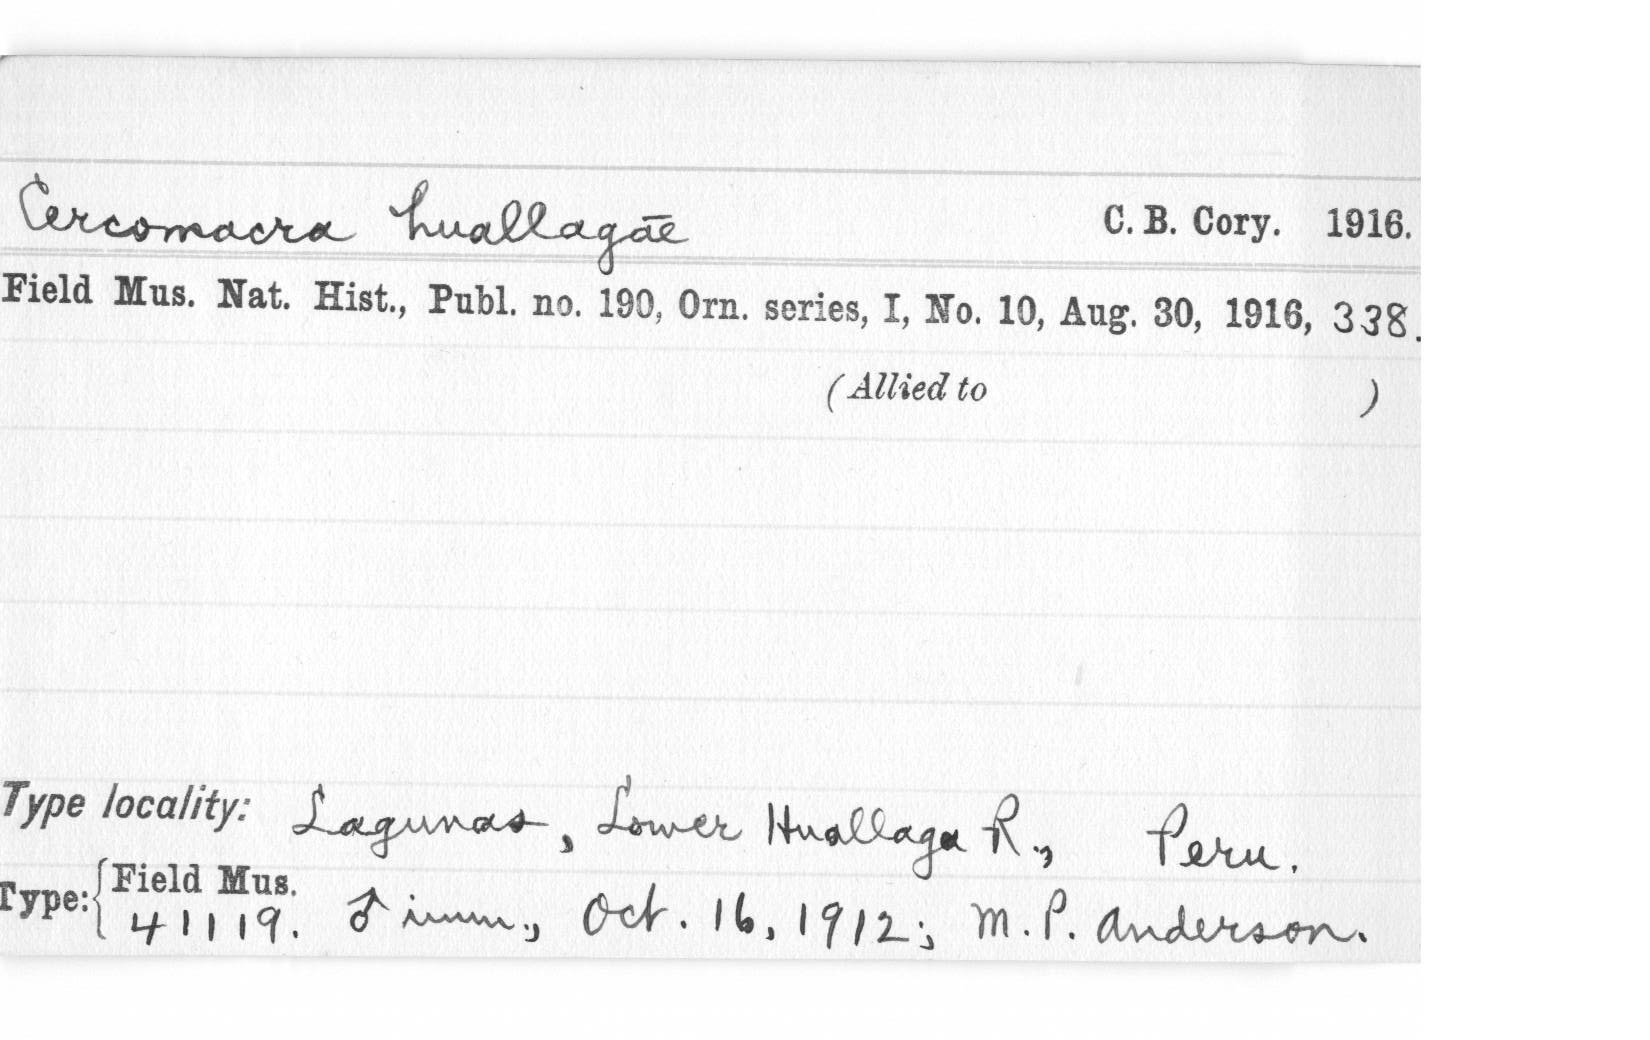 Cercomacra huallagae C. B. Cory. 1916.
Field Mus. Nat. Hist., Publ. no. 190, Orn. series, I, No. 10, Aug. 30, 1916, 338.
(Allied to )
Type locality: Lagunas, Lower Huallaga R., Peru.
Type: { Field Mus.
41119. ♂ imm., Oct. 16, 1912; M. P. Anderson.